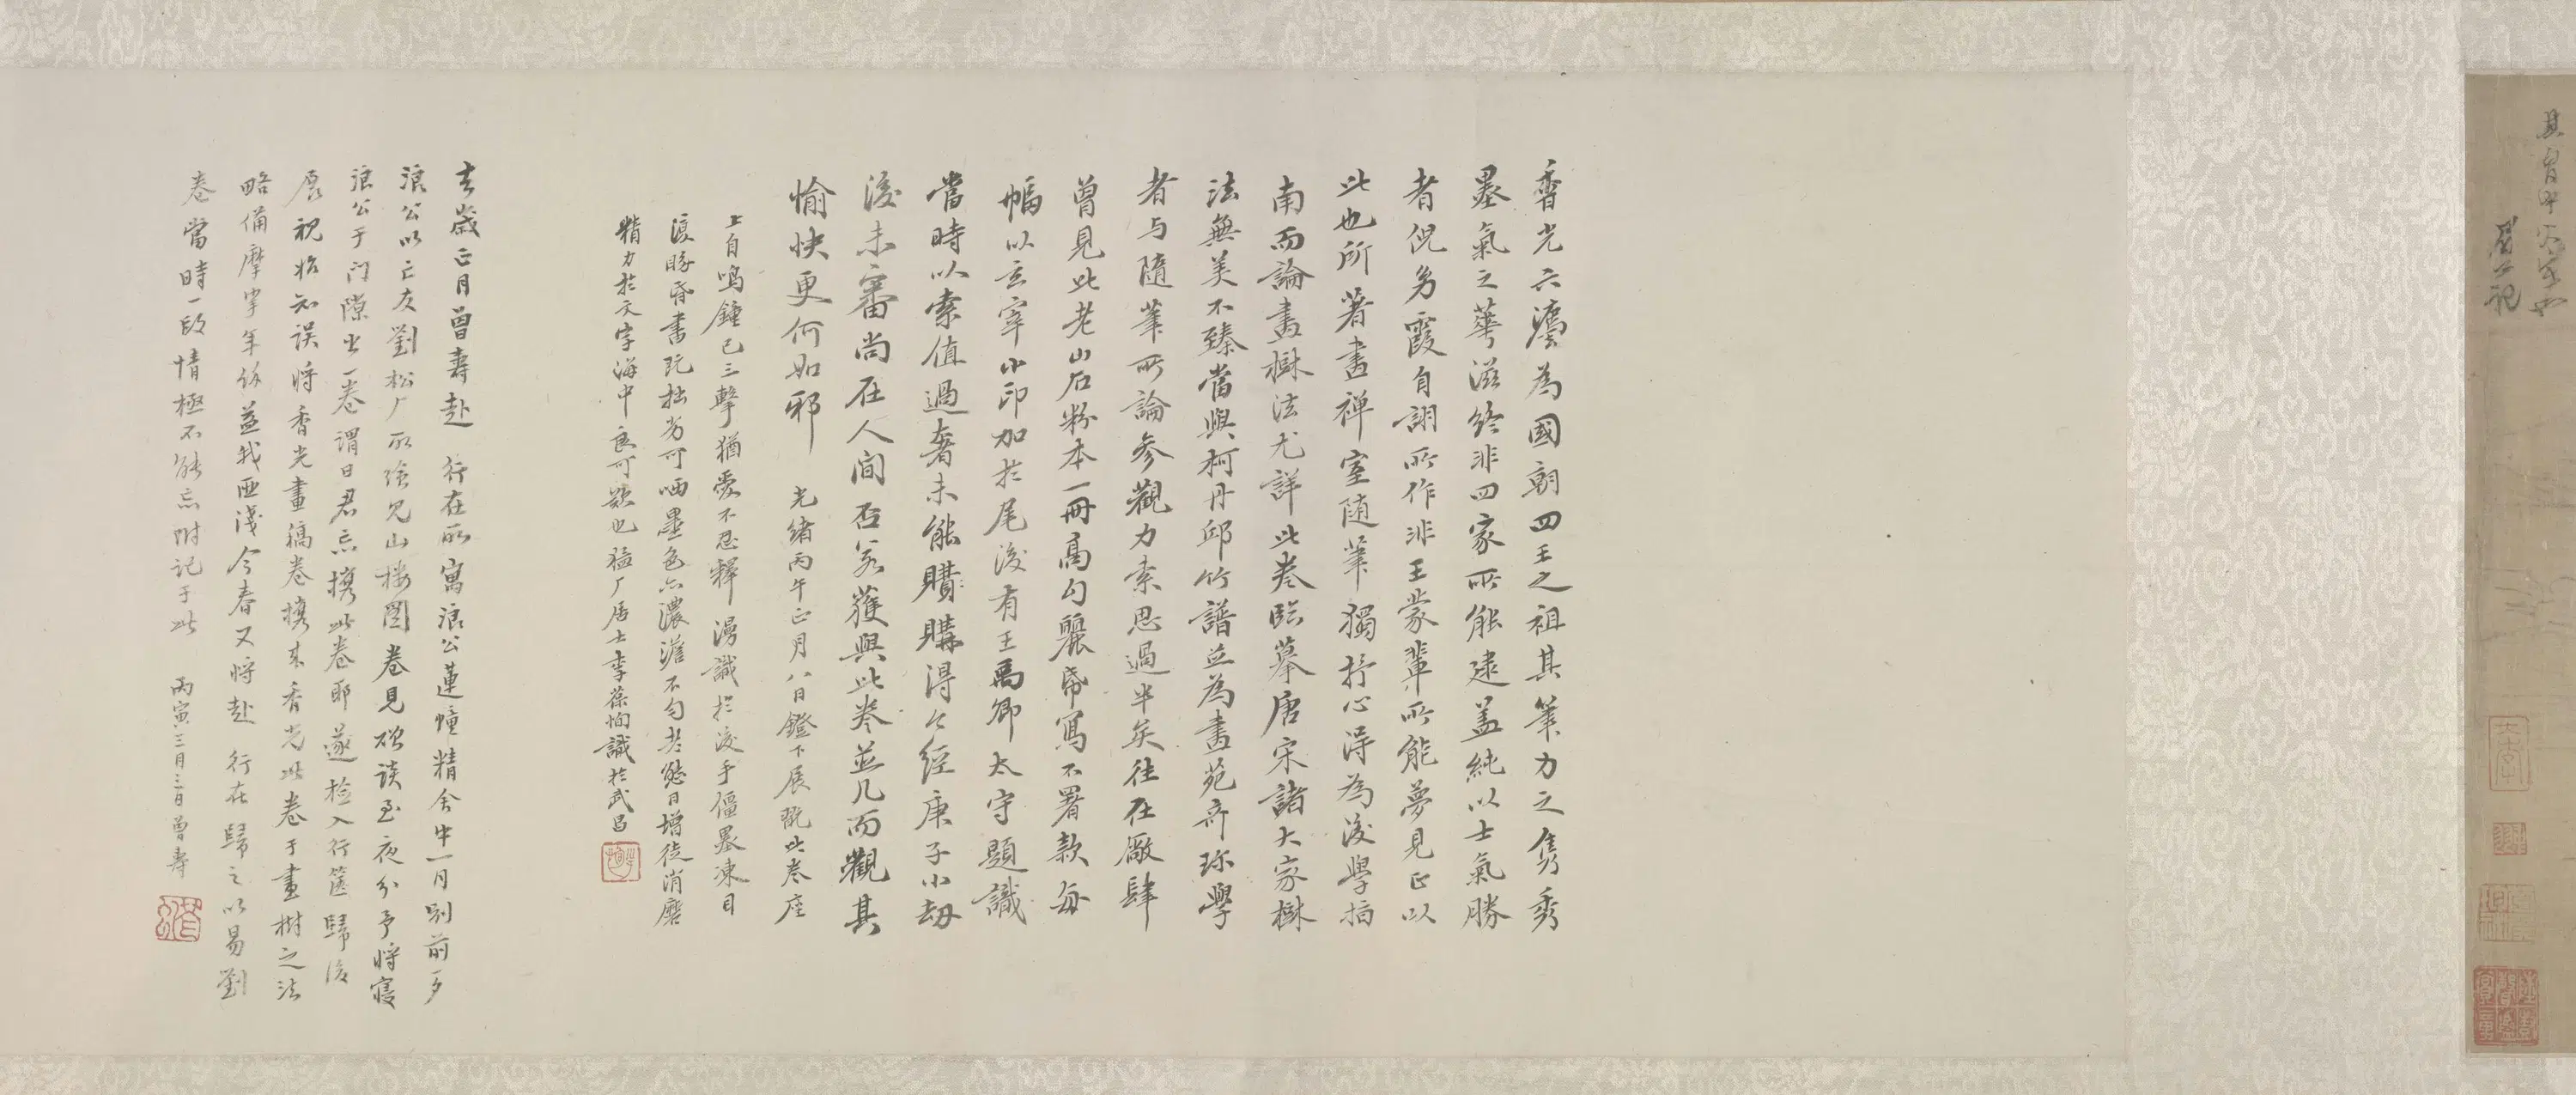 其胷中
眉公記
香光六濤為國朝四王之祖其筆力之雋秀
墨氣之華滋終非四家所能逮蓋純以士氣勝
者倪多霞自詡所作非王蒙輩所能夢見正以
此也所著畫禅室随筆獨抒心得為後學指
南而論畫樹法尤詳此卷臨摹唐宋諸大家樹
法無美不臻當與柯丹邱竹譜並為畫苑奇珍學
者与隨筆所論參觀力索思過半矣往在廠肆
曾見此老山石粉本一冊高勾麗帋寫不署款每
幅以玄宰小印加於尾後有王禹卿太守題識
當時以索值過奢未能購購得今經庚子小劫
後未審尚在人間否若獲與此卷並几而觀其
愉快更何如邪 光緒丙午正月八日鐙下展翫此卷座
上自鳴鍾已三擊猶愛不忍釋漫識於後手僵墨凍目
澀眵昏書既拙劣可哂墨色亦濃澹不勻老態日增徒消磨
精力於文字海中良可歎也猛厂居士李葆恂識於武昌
去歲正月曾壽赴 行在所寓浪公蓮幢精舍中一月別前夕
浪公以亡友劉松厂所繪見山樓圖卷見貽談至夜分予將寢
浪公于门隙出一卷謂曰君忘携此卷耶遂檢入行篋歸後
展視始知误將香光畫稿卷携来香光此卷于畫樹之法
略備摩挲年餘益我匪淺今春又將赴 行在歸之以易劉
卷當時一段情極不能忘附记于此 丙寅三月三日曾壽